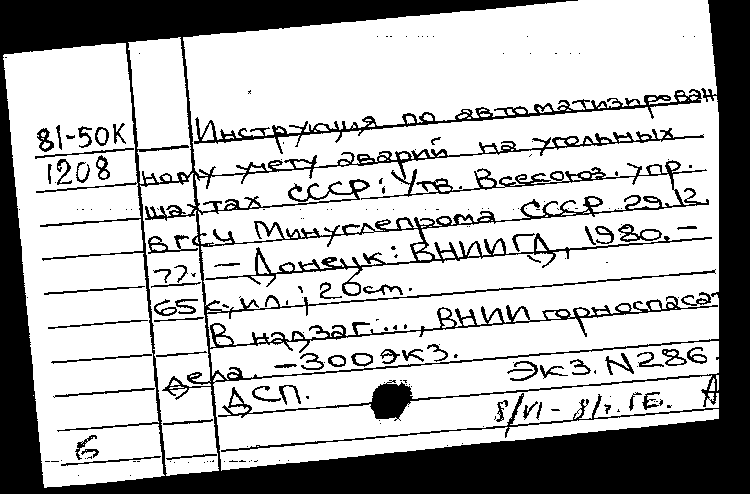 81-50К
1208
Инструкция по автоматизирован
ному учету аварий на угольных
шахтах СССР: Утв. Всесоюз. упр.
ВГСЧ Минуглепрома СССР 29.12.
77. – Донецк: ВНИИГД, 1980. –
65 с., ил.; 20 см.
В надзаг.: ..., ВНИИ горноспасат
дела. – 300 экз.
ДСП. Экз. N 286.
8/VI – ГЕ. А
6